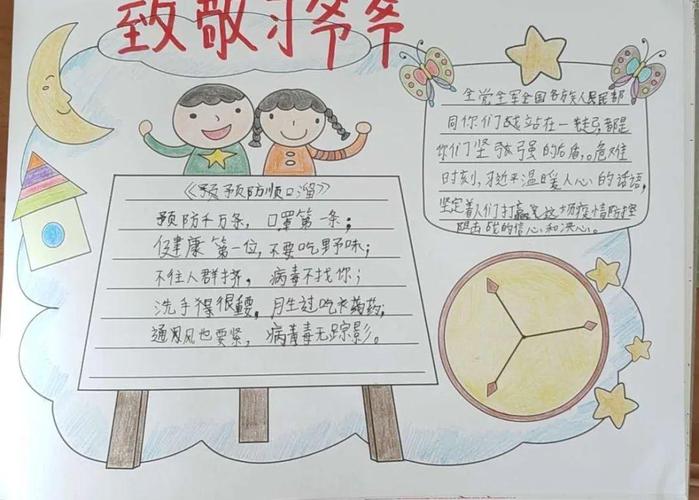 致敬习爷爷
《预防顺口溜》
预防千万条，口罩第一条；
健康第一位，不要吃野味；
不往人群挤，病毒不找你；
洗手很，月生过吃药；
通风也要紧，病毒无踪影。
全党全军全国各族人民民都
同你们战站在一起都是
你们坚强的后盾。危难
时刻，习近平温暖人心的话语，
坚定着人们打赢这场疫情防控
阻击战的信心和决心。